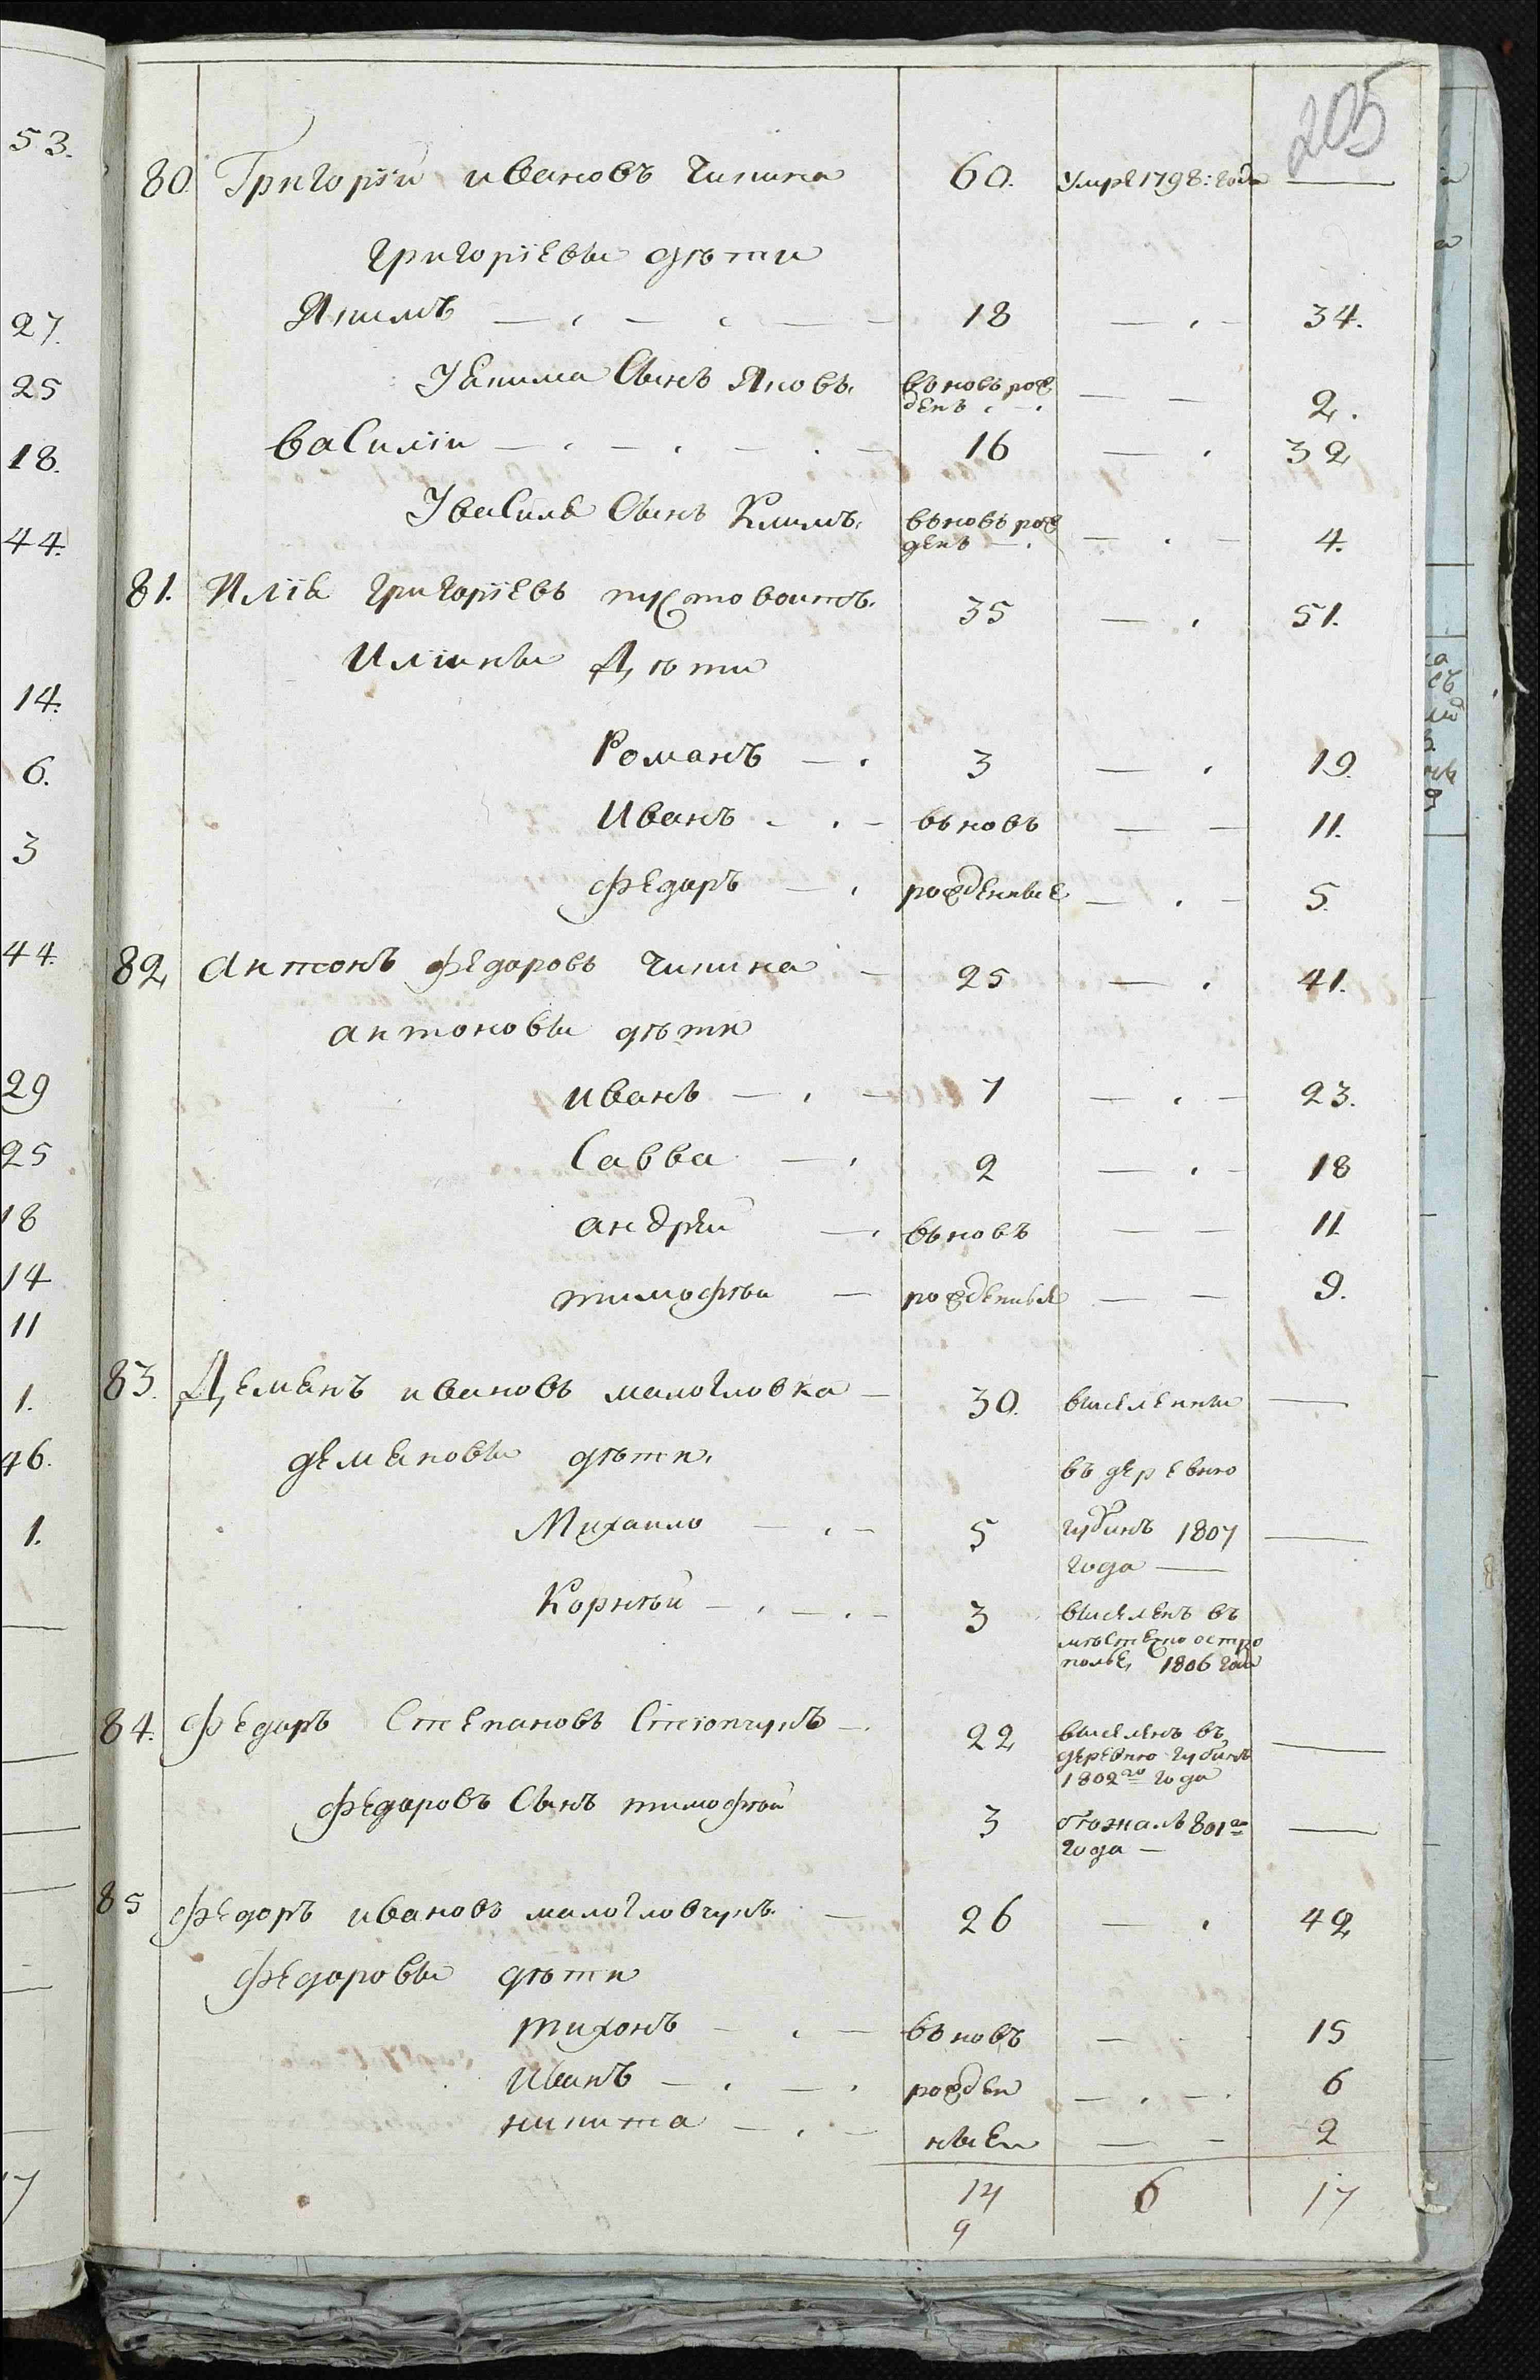 205
80. Григорій ивановъ Чипина 60. умре 1798: года —
григоріевы дѣти
Якимъ 18 — 34.
У Екима Сынъ Яковъ. въновь рожденъ — 2.
василіи 16 — 32
У василя Сынъ Климъ. въновь рожденъ — 4.
81. Илія григоріевъ пустовоитъ. 35 — 51.
Иліины Дѣти
Романъ 3 — 19.
Иванъ въновь — 11.
федоръ рожденные — 5.
82 Антонъ федоровъ Чипина 25 — 41.
антоновы дѣти
иванъ 7 — 23.
Савва 2 — 18
андрей въновь — 11
тимофѣи рожденыя — 9.
83. Демянъ ивановъ малоголовка 30. выселенны —
демяновы дѣти. въ деревню
Михаило 5 губинъ 1807 —
года —
Корнѣй 3 выселенъ въ
мѣстечко остро
полье, 1806 года
84. федоръ Степановъ Степанчукъ 22 выселенъ въ
деревню губинъ —
1802го года
федоровъ Сынъ тимофѣй 3 бѣжалъ 801го —
года —
85 федоръ ивановъ малоголовчукъ. 26 — 42
федоровы дѣти
тихонъ въновь — 15
Иванъ рожден — 6
никита ныеи — 2
14 6 17
9
53.
27.
25
18.
44.
14.
6.
3
44.
29
25
18
14
11
1.
46.
1.